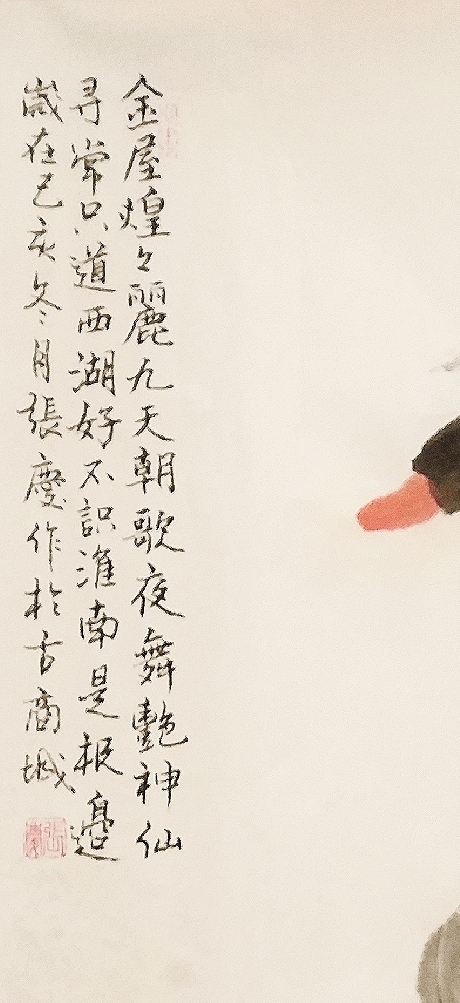 金屋煌々麗九天朝歌夜舞艷神仙
尋常只道西湖好不识淮南是根邉
歲在己亥冬月張慶作於古商城
張慶